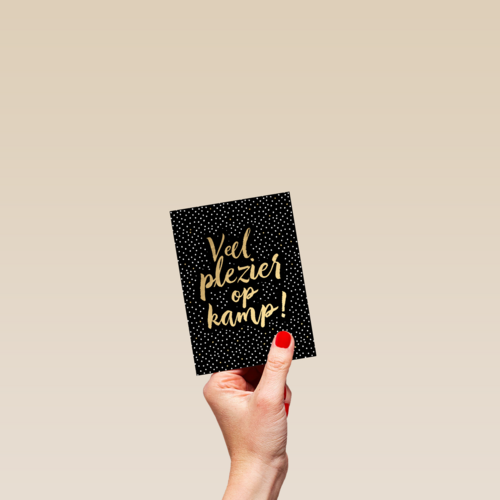 Veel
plezier
op
kamp!